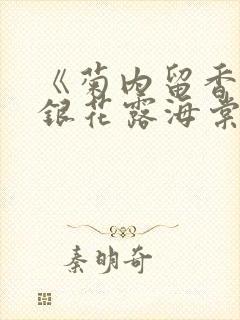 《菊内留香
银花露海棠
秦明奇